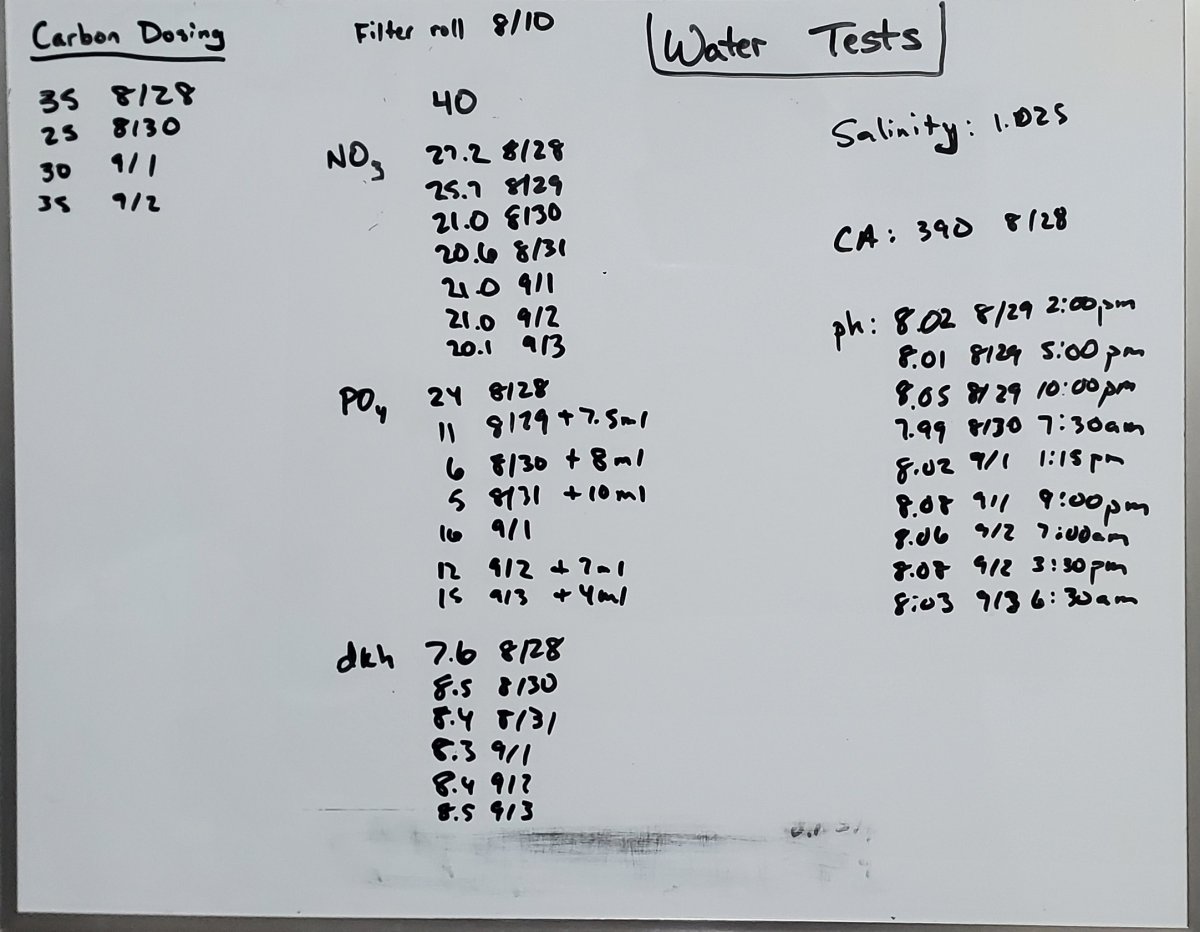 Carbon Dosing
35 8/28
25 8/30
30 9/1
35 9/2
Filter roll 8/10
40
NO3 27.2 8/28
25.7 8/29
21.0 8/30
20.6 8/31
21.0 9/1
21.0 9/2
20.1 9/3
PO4 24 8/28
11 8/29 + 7.5ml
6 8/30 + 8ml
5 8/31 + 10ml
16 9/1
12 9/2 + 7ml
15 9/3 + 4ml
dkh 7.6 8/28
8.5 8/30
8.4 8/31
8.3 9/1
8.4 9/2
8.5 9/3
Water Tests
Salinity: 1.025
CA: 390 8/28
ph: 8.02 8/29 2:00pm
8.01 8/29 5:00pm
8.05 8/29 10:00pm
7.99 8/30 7:30am
8.02 9/1 1:15pm
8.08 9/1 9:00pm
8.06 9/2 7:00am
8.08 9/2 3:30pm
8:03 9/3 6:30am